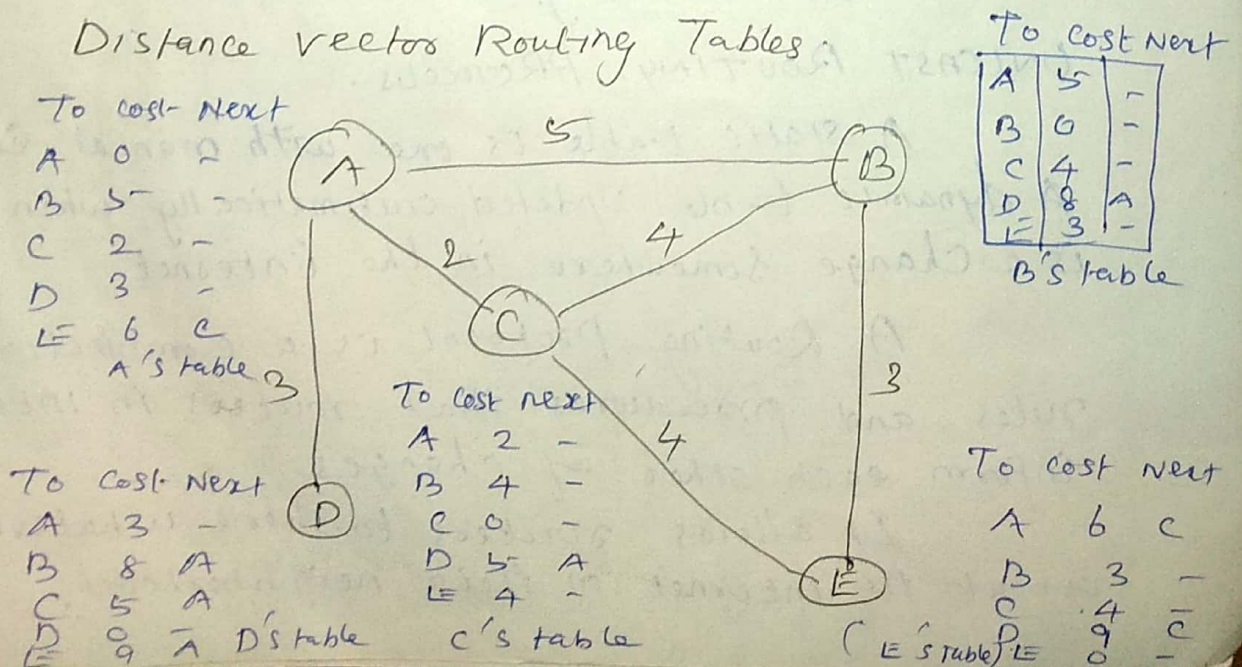 Distance vector Routing Tables.
To Cost Next
A 0 -
B 5 -
C 2 -
D 3 -
E 6 C
A's table
To Cost Next
A 5 -
B 0 -
C 4 -
D 8 A
E 3 -
B's table
A
5
B
2
4
C
3
3
4
D
E
To Cost next
A 2 -
B 4 -
C 0 -
D 5 A
E 4 -
C's table
To Cost Next
A 3 -
B 8 A
C 5 A
D 0 -
E 9 A
D's table
To Cost Next
A 6 C
B 3 -
C 4 -
D 9 C
E 0 -
(E's table)